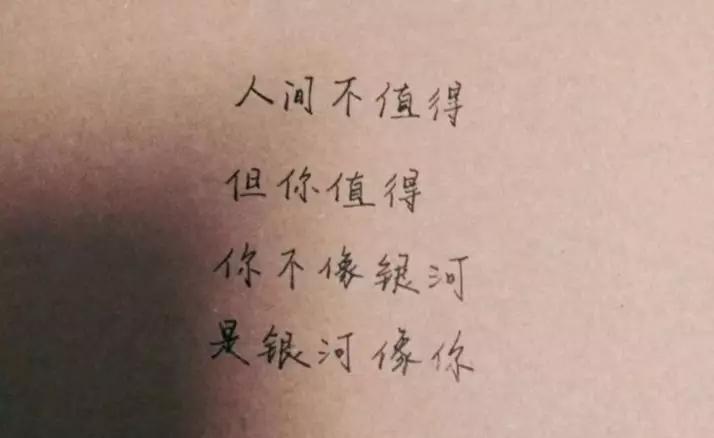 人间不值得
但你值得
你不像银河
是银河像你